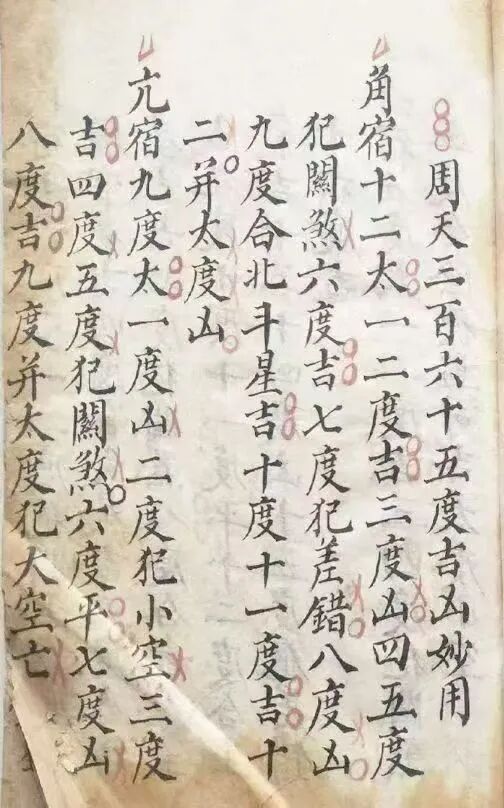 周天三百六十五度吉凶妙用
角宿十二太一二度吉三度凶四五度
犯關煞六度吉七度犯差錯八度凶
九度合北斗星吉十度十一度吉十
二并太度凶
亢宿九度太一度凶二度犯小空三度
吉四度五度犯關煞六度平七度凶
八度吉九度并太度犯大空亡